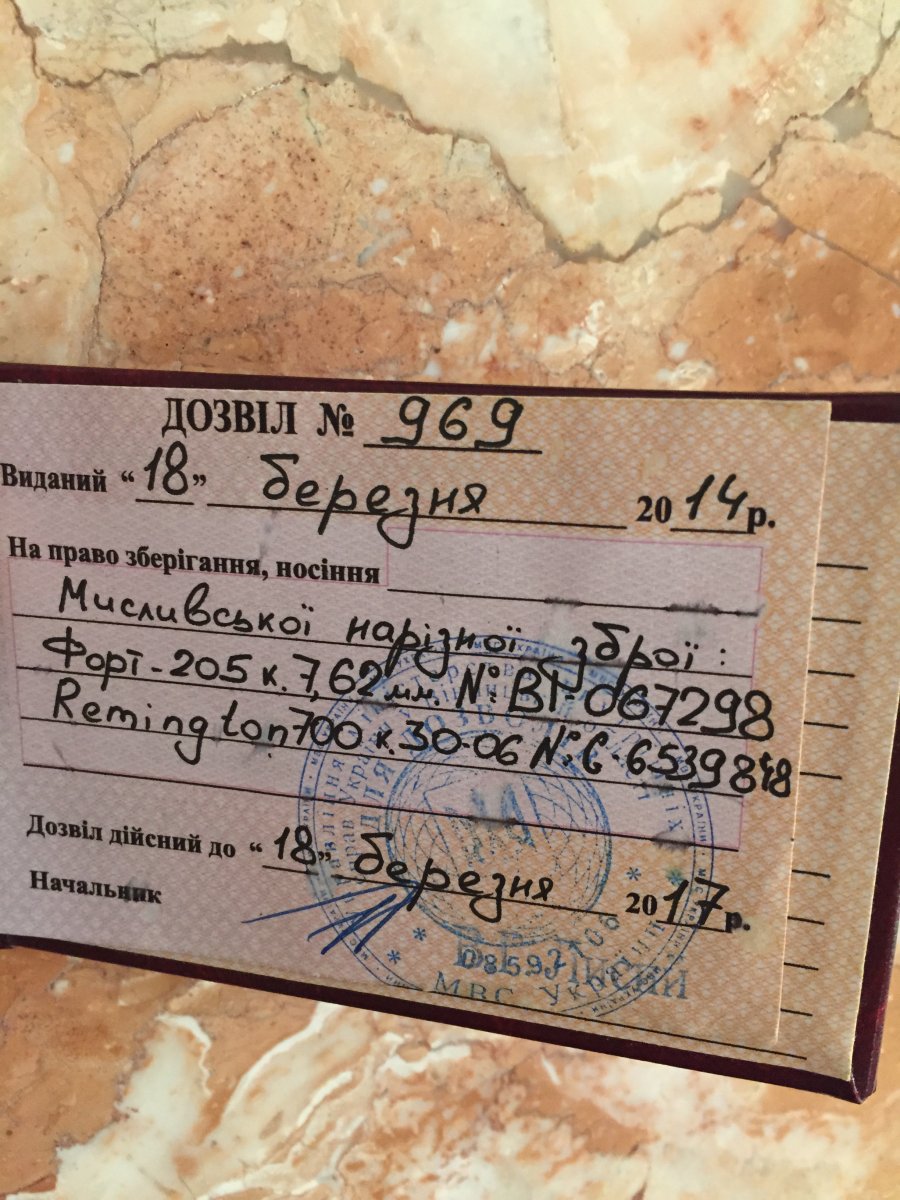 ДОЗВІЛ № 969
Виданий “18” березня 2014р.
На право зберігання, носіння
Мисливської нарізної зброї:
Форт-205 к.7,62мм. №ВТ-067298
Remington700 к.30-06 №C-6539848
Дозвіл дійсний до “18” березня 2017р.
Начальник
08592106
МВС України